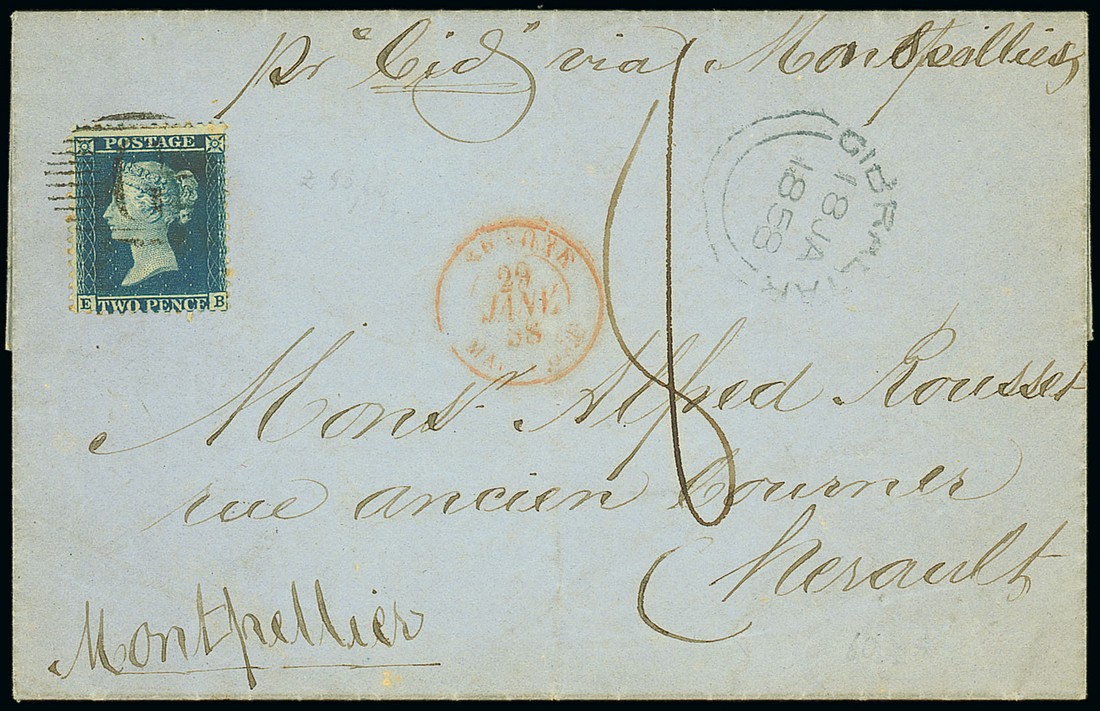 pr "Cid" via Montpellier
POSTAGE
TWO PENCE
E B
G
GIBRALTAR
18 JA
1858
29
JANV
58
Mons. Alfred Rousset
rue ancien Courrier
Herault
Montpellier